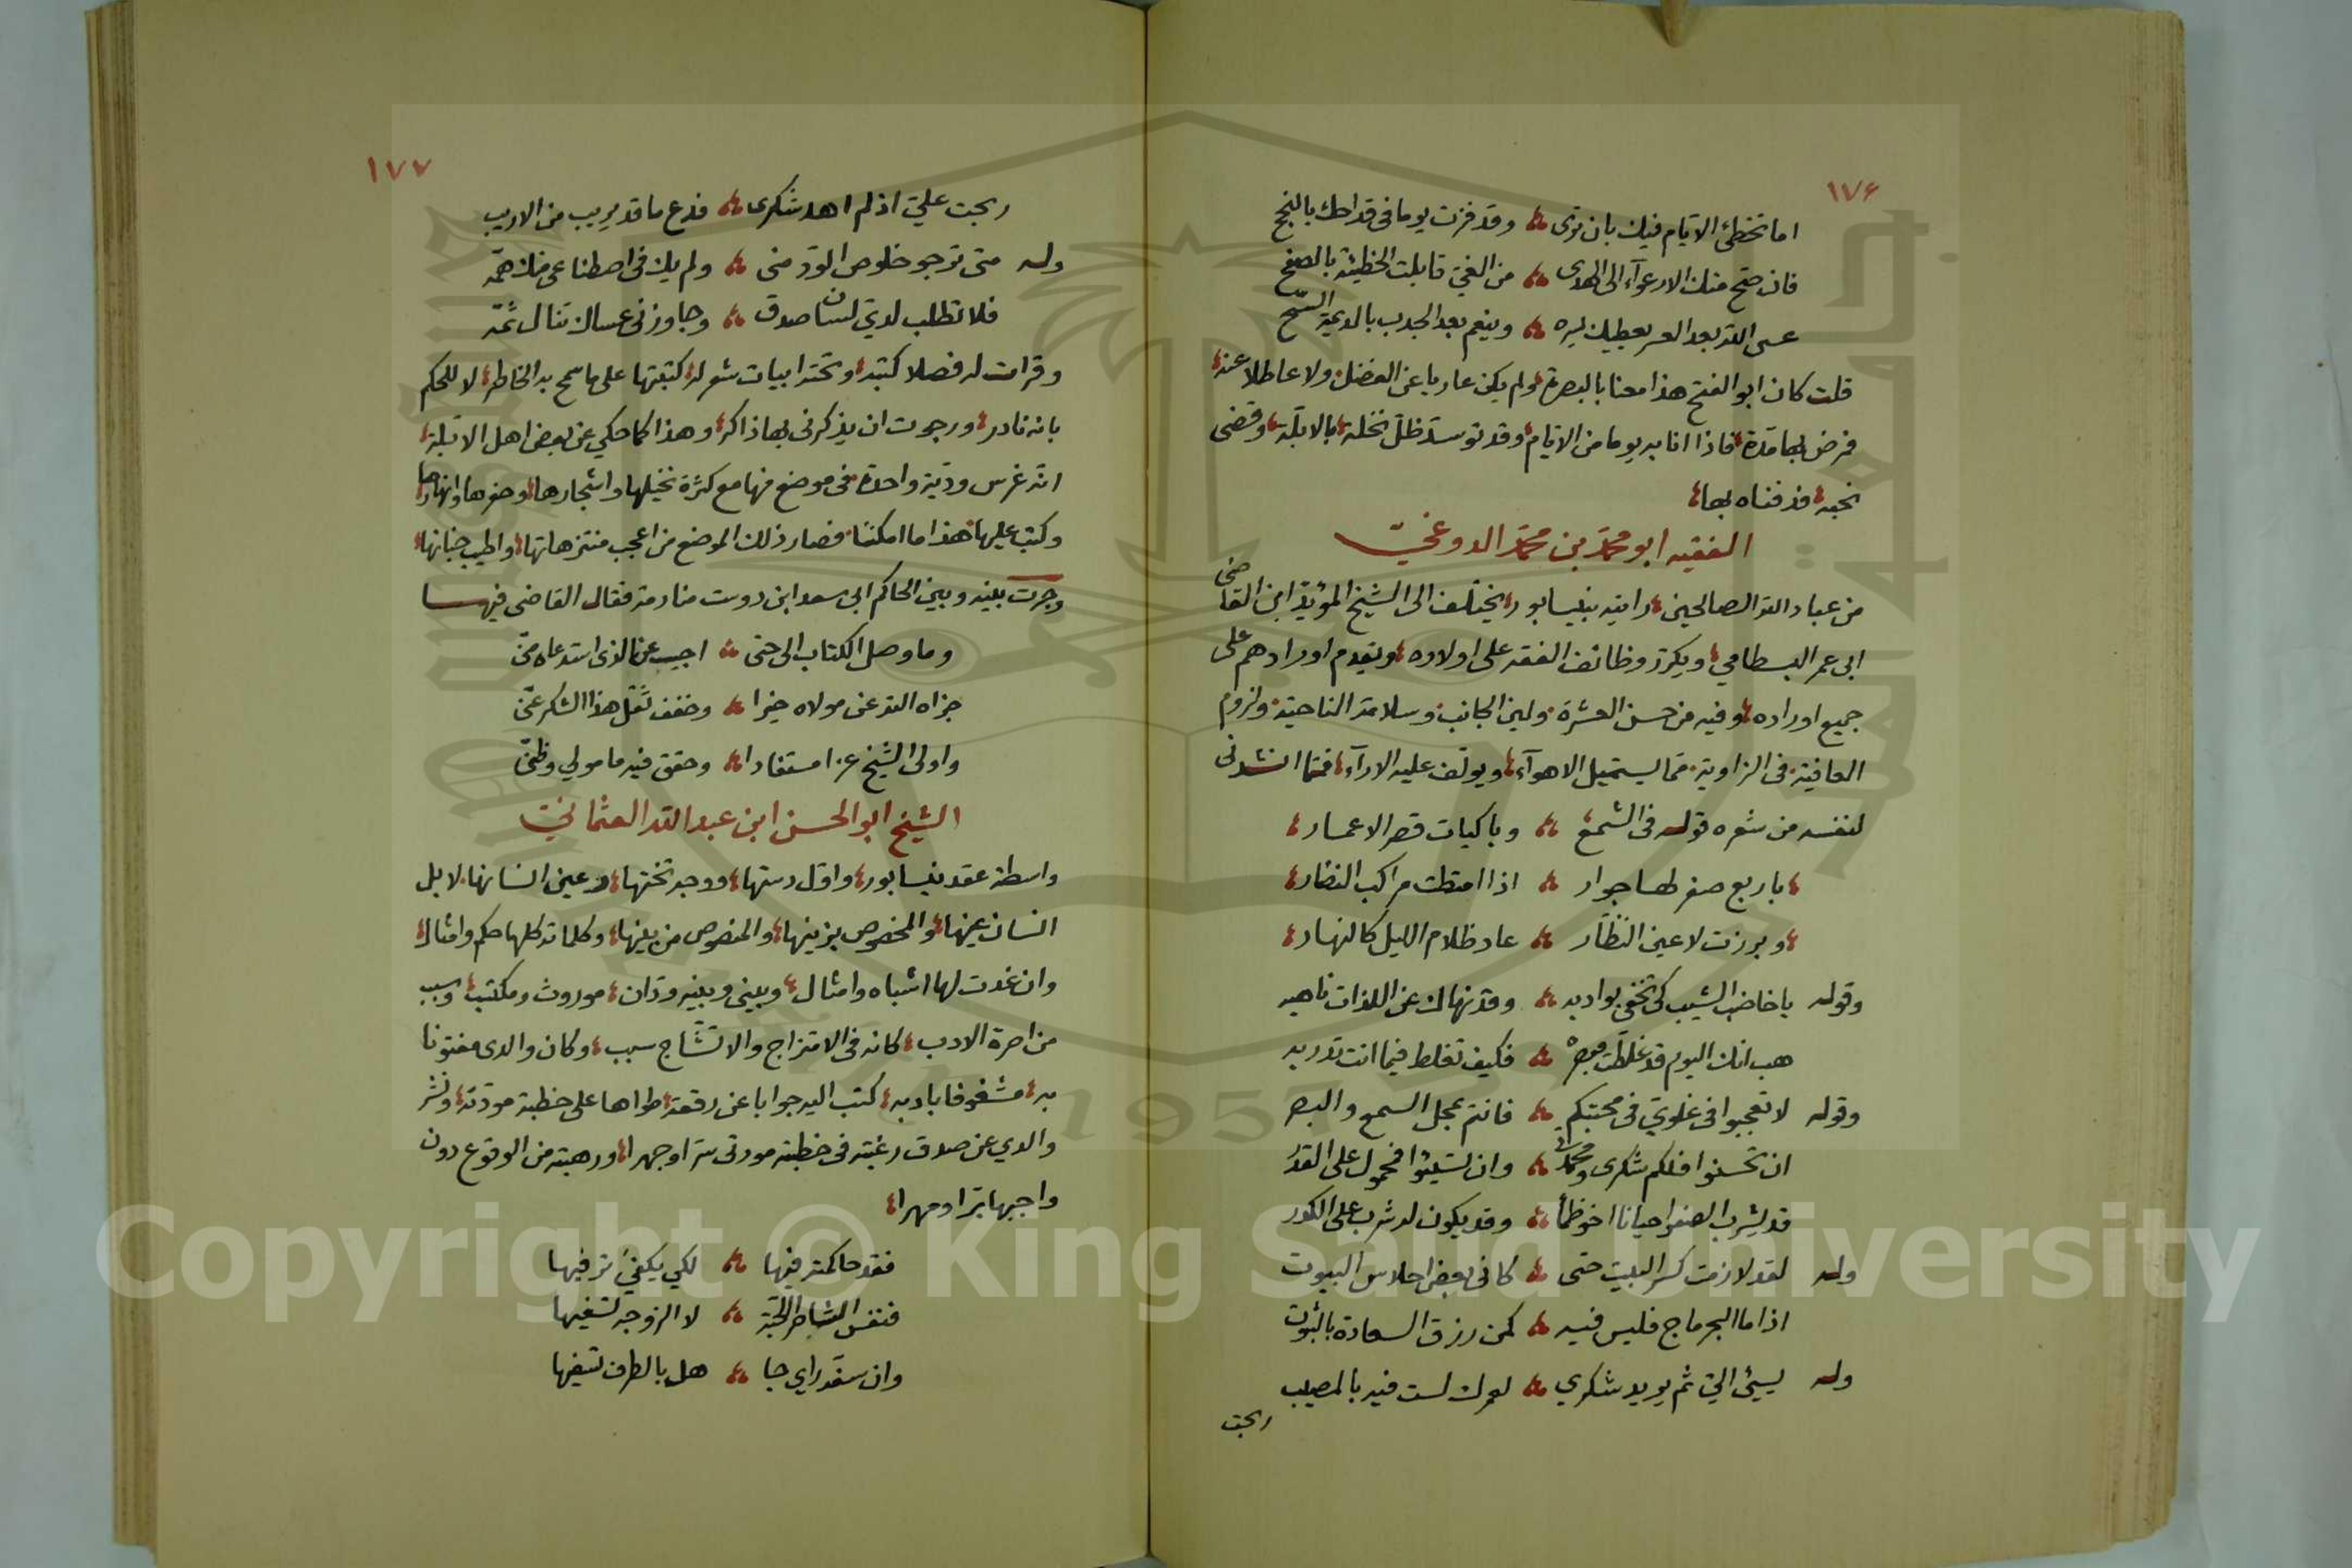 ١٧٦
اما تخطئ الايام فيك بان ترى وقد فزت يوما فى قداحك بالنجح
فان صح منك الارعوآء الى الهدى من الغى قابلت الخطيئة بالصفح
عسى الله بعد العسر يعطيك يسره وينعم بعد الجدب بالديمة السح
قلت كان ابو الفتح هذا معنا بالبصرة ولم يكن عاريا عن الفضل ولا عاطلا عنه
فمرض بها مدة فاذا انا به يوما من الايام وقد توسد ظل نخلة بالابلة وقضى
نحبه فدفناه بها
الفقيه ابو محمد بن محمد الدوغى
من عباد الله الصالحين رايته بنيسابور يختلف الى الشيخ المؤيد ابن القاضى
ابى عمر البسطامي ويكرر وظائف الفقه على اولاده ويقدم اورادهم على
جميع اوراده وفيه من حسن العشرة ولين الجانب وسلامة الناحية ولزوم
العافية فى الزاوية مما يستميل الاهوآء ويولف عليه الارآء فمما انشدنى
لنفسه من شعره قوله فى الشمع وباكيات قصر الاعمار
باربع صفر لها جوار اذا امتطت مراكب النضار
وبرزت لاعين النظار عاد ظلام الليل كالنهار
وقوله ياخاضب الشيب كى تخفى بواديه وقد نهاك عن اللذات ناهيه
هب انك اليوم قد غلطت مبصره فكيف تغلط فيما انت تدريه
وقوله لا تعجبوا فى غلوي فى محبتكم فانتم بمحل السمع والبصر
ان تحسنوا فلكم شكرى ومحمدتى وان تسيئوا فمحمول على القدر
قد يشرب الصفو احيانا اخو ظمأ وقد يكون له شرب على الكدر
وله لقد لازمت كسر البيت حتى كانى بعض احلاس البيوت
اذا ما البحر ماج فليس فيه كمن رزق السعادة بالثبوت
وله يسيئ الي ثم يريد شكري لعمرك لست فيه بالمصيب
ربحت
١٧٧
ربحت علي اذ لم اهد شكرى فدع ما قد يريب من الاريب
وله متى ترجو خلوص الود منى ولم يك فى اصطناعى منك همه
فلا تطلب لدي لسان صدق وجاوزنى عساك تنال ثمه
وقرات له فصلا كتبه وتحته ابيات شعر له كتبتها على ما سمح به الخاطر لا للحكم
بانه نادر ورجوت ان يذكرنى بها ذاكر وهذا كما حكي عن بعض اهل الابلة
انه غرس ودية واحدة فى موضع فيها مع كثرة نخيلها واشجارها وحفرها وانهارها
وكتب عليها هذا ما امكننا فصار ذلك الموضع من اعجب منتزهاتها واطيب جناتها
وجرت بينه وبين الحاكم ابى سعد ابن دوست منادمة فقال القاضى فيها
وما وصل الكتاب الى حتى اجيب عن الذى استدعاه منى
جزاه الله عن مولاه خيرا وخفف ثقل هذا الشكر عنى
واولى الشيخ عزا مستفادا وحقق فيه مامولي وظنى
الشيخ ابو الحسن ابن عبد الله العثماني
واسطة عقد نيسابور واول دستها ووجه تختها وعين انسانها لا بل
انسان عينها والمخصوص بزينها والمنصوص من بينها وكلماته كلها حكم وامثال
وان غدت لها اشباه وامثال وبينى وبينه ودان موروث ومكتسب وسبب
من اصرة الادب كانه فى الامتزاج والاتشاج سبب وكان والدى مفتونا
به مشغوفا بادبه كتب اليه جوابا عن رقعة طواها على خطبة مودته ونشر
والدي عن صدق رغبته فى خطبة مودتى سرا وجهرا ورهبته من الوقوع دون
واجبها برا ومهرا
فقد حاكمته فيها لكي يكفئ ترفيها
فنفس الشاطر الحبة لا الزوجة تشفيها
وان سفه راي جا هل بالطرف تسفيها